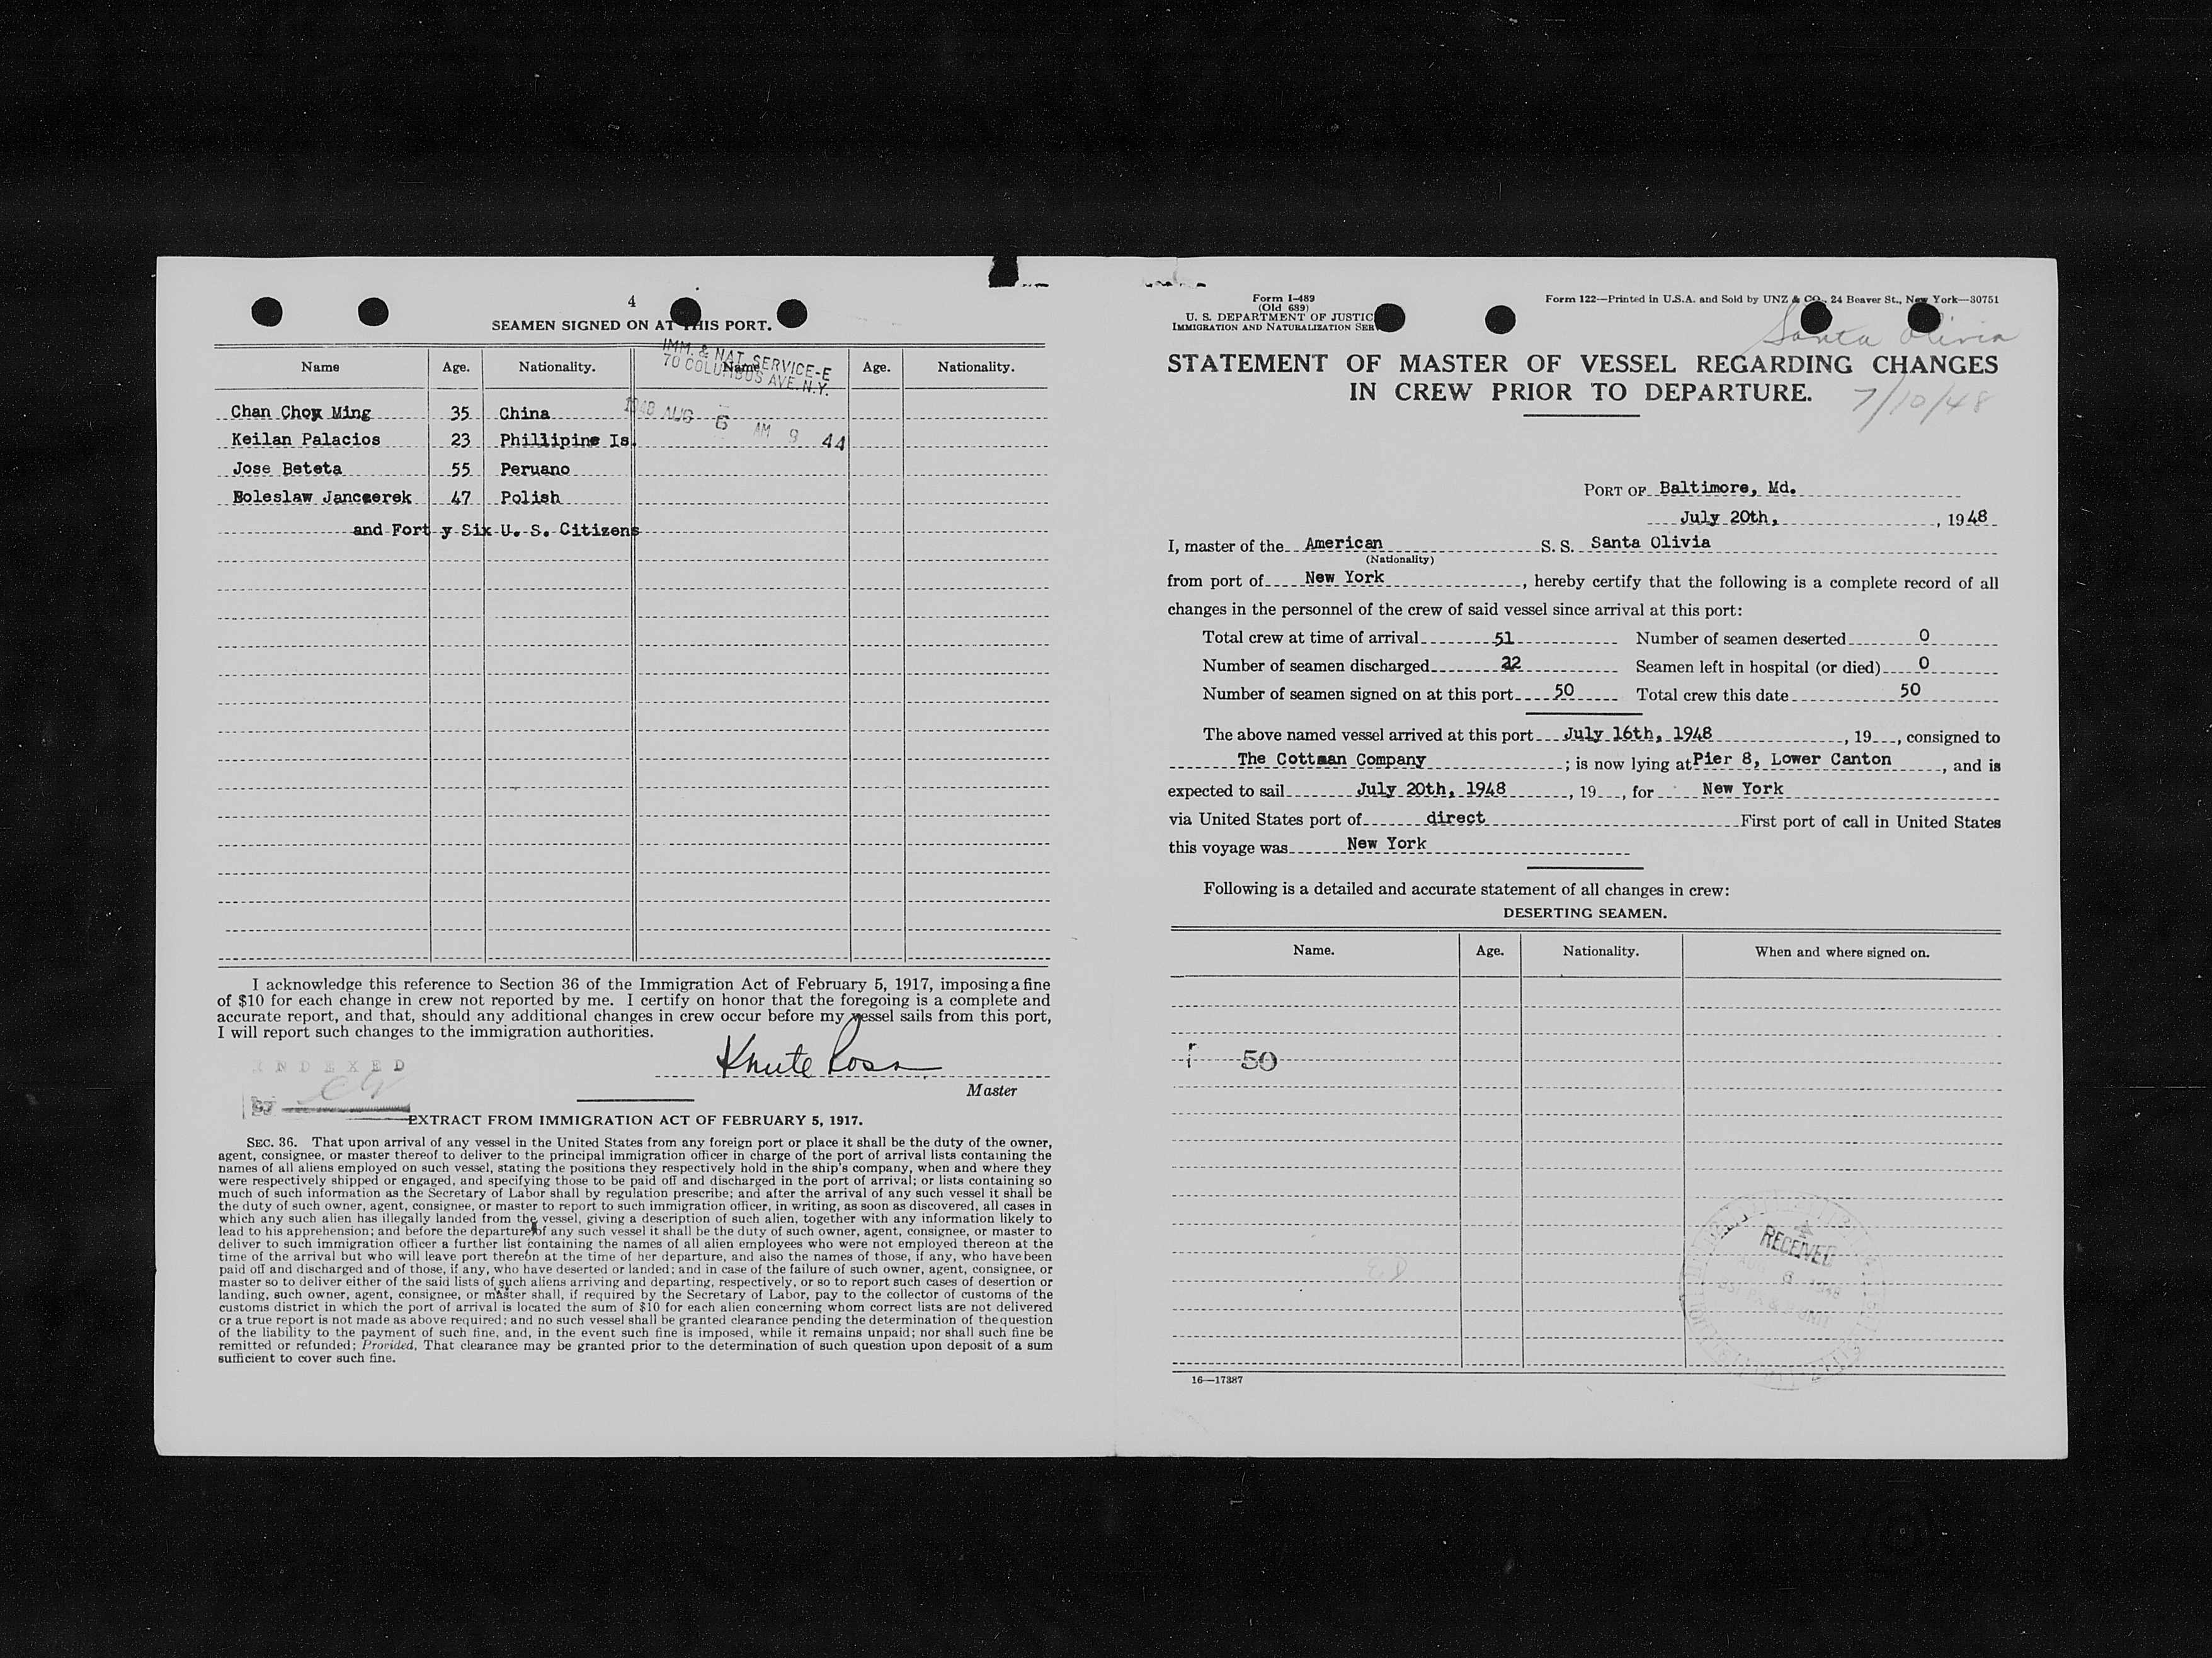 4
SEAMEN SIGNED ON AT THIS PORT.
IMM. & NAT. SERVICE-E
70 COLUMBUS AVE. N.Y.
Name Age. Nationality. Name Age. Nationality.
1948 AUG 6 AM 9 44
Chan Choy Ming 35 China
Keilan Palacios 23 Phillipine Is.
Jose Beteta 55 Peruano
Boleslaw Janczerek 47 Polish
and Fort y Six U. S. Citizens
I acknowledge this reference to Section 36 of the Immigration Act of February 5, 1917, imposing a fine
of $10 for each change in crew not reported by me. I certify on honor that the foregoing is a complete and
accurate report, and that, should any additional changes in crew occur before my vessel sails from this port,
I will report such changes to the immigration authorities.
INDEXED
Knute
Master
EXTRACT FROM IMMIGRATION ACT OF FEBRUARY 5, 1917.
SEC. 36. That upon arrival of any vessel in the United States from any foreign port or place it shall be the duty of the owner,
agent, consignee, or master thereof to deliver to the principal immigration officer in charge of the port of arrival lists containing the
names of all aliens employed on such vessel, stating the positions they respectively hold in the ship's company, when and where they
were respectively shipped or engaged, and specifying those to be paid off and discharged in the port of arrival; or lists containing so
much of such information as the Secretary of Labor shall by regulation prescribe; and after the arrival of any such vessel it shall be
the duty of such owner, agent, consignee, or master to report to such immigration officer, in writing, as soon as discovered, all cases in
which any such alien has illegally landed from the vessel, giving a description of such alien, together with any information likely to
lead to his apprehension; and before the departure of any such vessel it shall be the duty of such owner, agent, consignee, or master to
deliver to such immigration officer a further list containing the names of all alien employees who were not employed thereon at the
time of the arrival but who will leave port thereon at the time of her departure, and also the names of those, if any, who have been
paid off and discharged and of those, if any, who have deserted or landed; and in case of the failure of such owner, agent, consignee, or
master so to deliver either of the said lists of such aliens arriving and departing, respectively, or so to report such cases of desertion or
landing, such owner, agent, consignee, or master shall, if required by the Secretary of Labor, pay to the collector of customs of the
customs district in which the port of arrival is located the sum of $10 for each alien concerning whom correct lists are not delivered
or a true report is not made as above required; and no such vessel shall be granted clearance pending the determination of the question
of the liability to the payment of such fine, and, in the event such fine is imposed, while it remains unpaid; nor shall such fine be
remitted or refunded; Provided, That clearance may be granted prior to the determination of such question upon deposit of a sum
sufficient to cover such fine.
Form I-489
(Old 689)
U. S. DEPARTMENT OF JUSTIC
IMMIGRATION AND NATURALIZATION SER
Form 122—Printed in U.S.A. and Sold by UNZ & CO., 24 Beaver St., New York—30751
Santa Olivia
STATEMENT OF MASTER OF VESSEL REGARDING CHANGES
IN CREW PRIOR TO DEPARTURE.
7/10/48
PORT OF Baltimore, Md.
July 20th, , 1948
I, master of the American S. S. Santa Olivia
(Nationality)
from port of New York , hereby certify that the following is a complete record of all
changes in the personnel of the crew of said vessel since arrival at this port:
Total crew at time of arrival 51 Number of seamen deserted 0
Number of seamen discharged 22 Seamen left in hospital (or died) 0
Number of seamen signed on at this port 50 Total crew this date 50
The above named vessel arrived at this port July 16th, 1948 , 19 , consigned to
The Cottman Company ; is now lying at Pier 8, Lower Canton , and is
expected to sail July 20th, 1948 , 19 , for New York
via United States port of direct First port of call in United States
this voyage was New York
Following is a detailed and accurate statement of all changes in crew:
DESERTING SEAMEN.
Name. Age. Nationality. When and where signed on.
50
RECEIVED
AUG 6 1948
16—17387